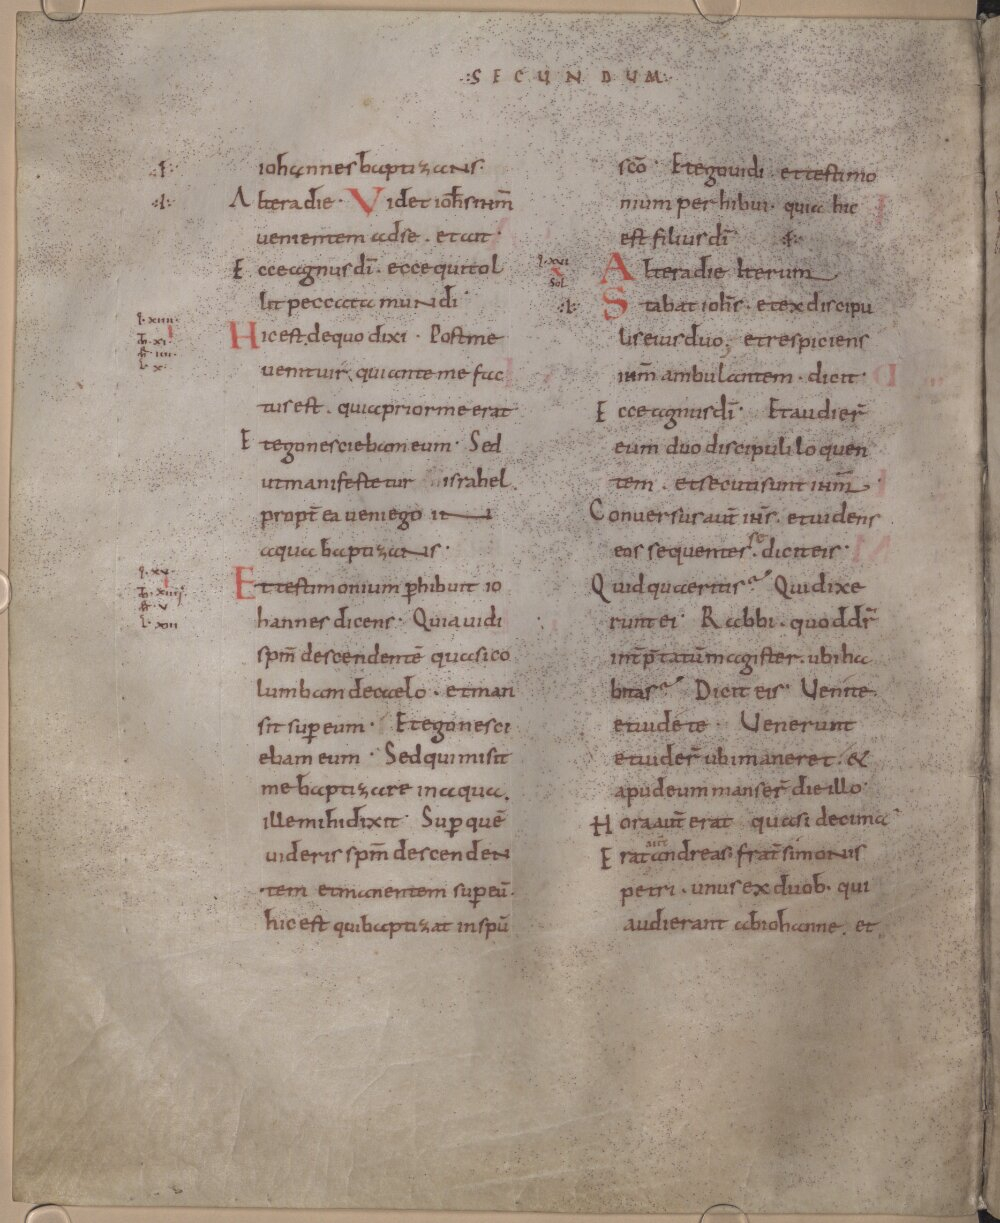 :SECUNDUM:
iohannes baptizans·
Altera die· Videt ioħs iħm̄
uenientem ad se. et ait·
Ecce agnus dī. ecce qui tol
lit peccata mundi·
Hic est de quo dixi· Post me
uenit uir, qui ante me fac
tus est. quia prior me erat
Et ego nesciebam eum· Sed
ut manifestetur israhel.
propt̄ea ueni ego in
aqua baptizans·
Et testimonium ꝑhibuit io
hannes dicens· Quia uidi
spm̄ descendentē quasi co
lumbam de caelo. et man
sit suꝑ eum· Et ego nesci
ebam eum· Sed qui misit
me baptizare in aqua.
ille mihi dixit· Suꝑ quē
uideris spm̄ descenden
tem et manentem suꝑ eū·
hic est qui baptizat in spū
scō· Et ego uidi. et testimo
nium perhibui. quia hic
est filius dī
Altera die. Iterum
Stabat ioħs. et ex discipu
lis eius duo, et respiciens
iħm̄ ambulantem. dicit·
Ecce agnus dī· Et audier̄
eum duo discipuli loquen
tem. et secuti sunt iħm̄.
Conuersus aut̄ iħs. et uidens
eos sequentes se. dicit eis·
Quid quaeritis? Qui dixe
runt ei· Rabbi. quod dr̄
int̄p̄tatū magister. ubi ha
bitas? Dicit eis· Uenite
et uidete· Uenerunt
et uider̄ ubi maneret. &
apud eum manser̄ die illo·
Hora aut̄ erat quasi decima·
Erat aut̄ andreas frat̄ simonis
petri. unus ex duob. qui
audierant ab iohanne. et